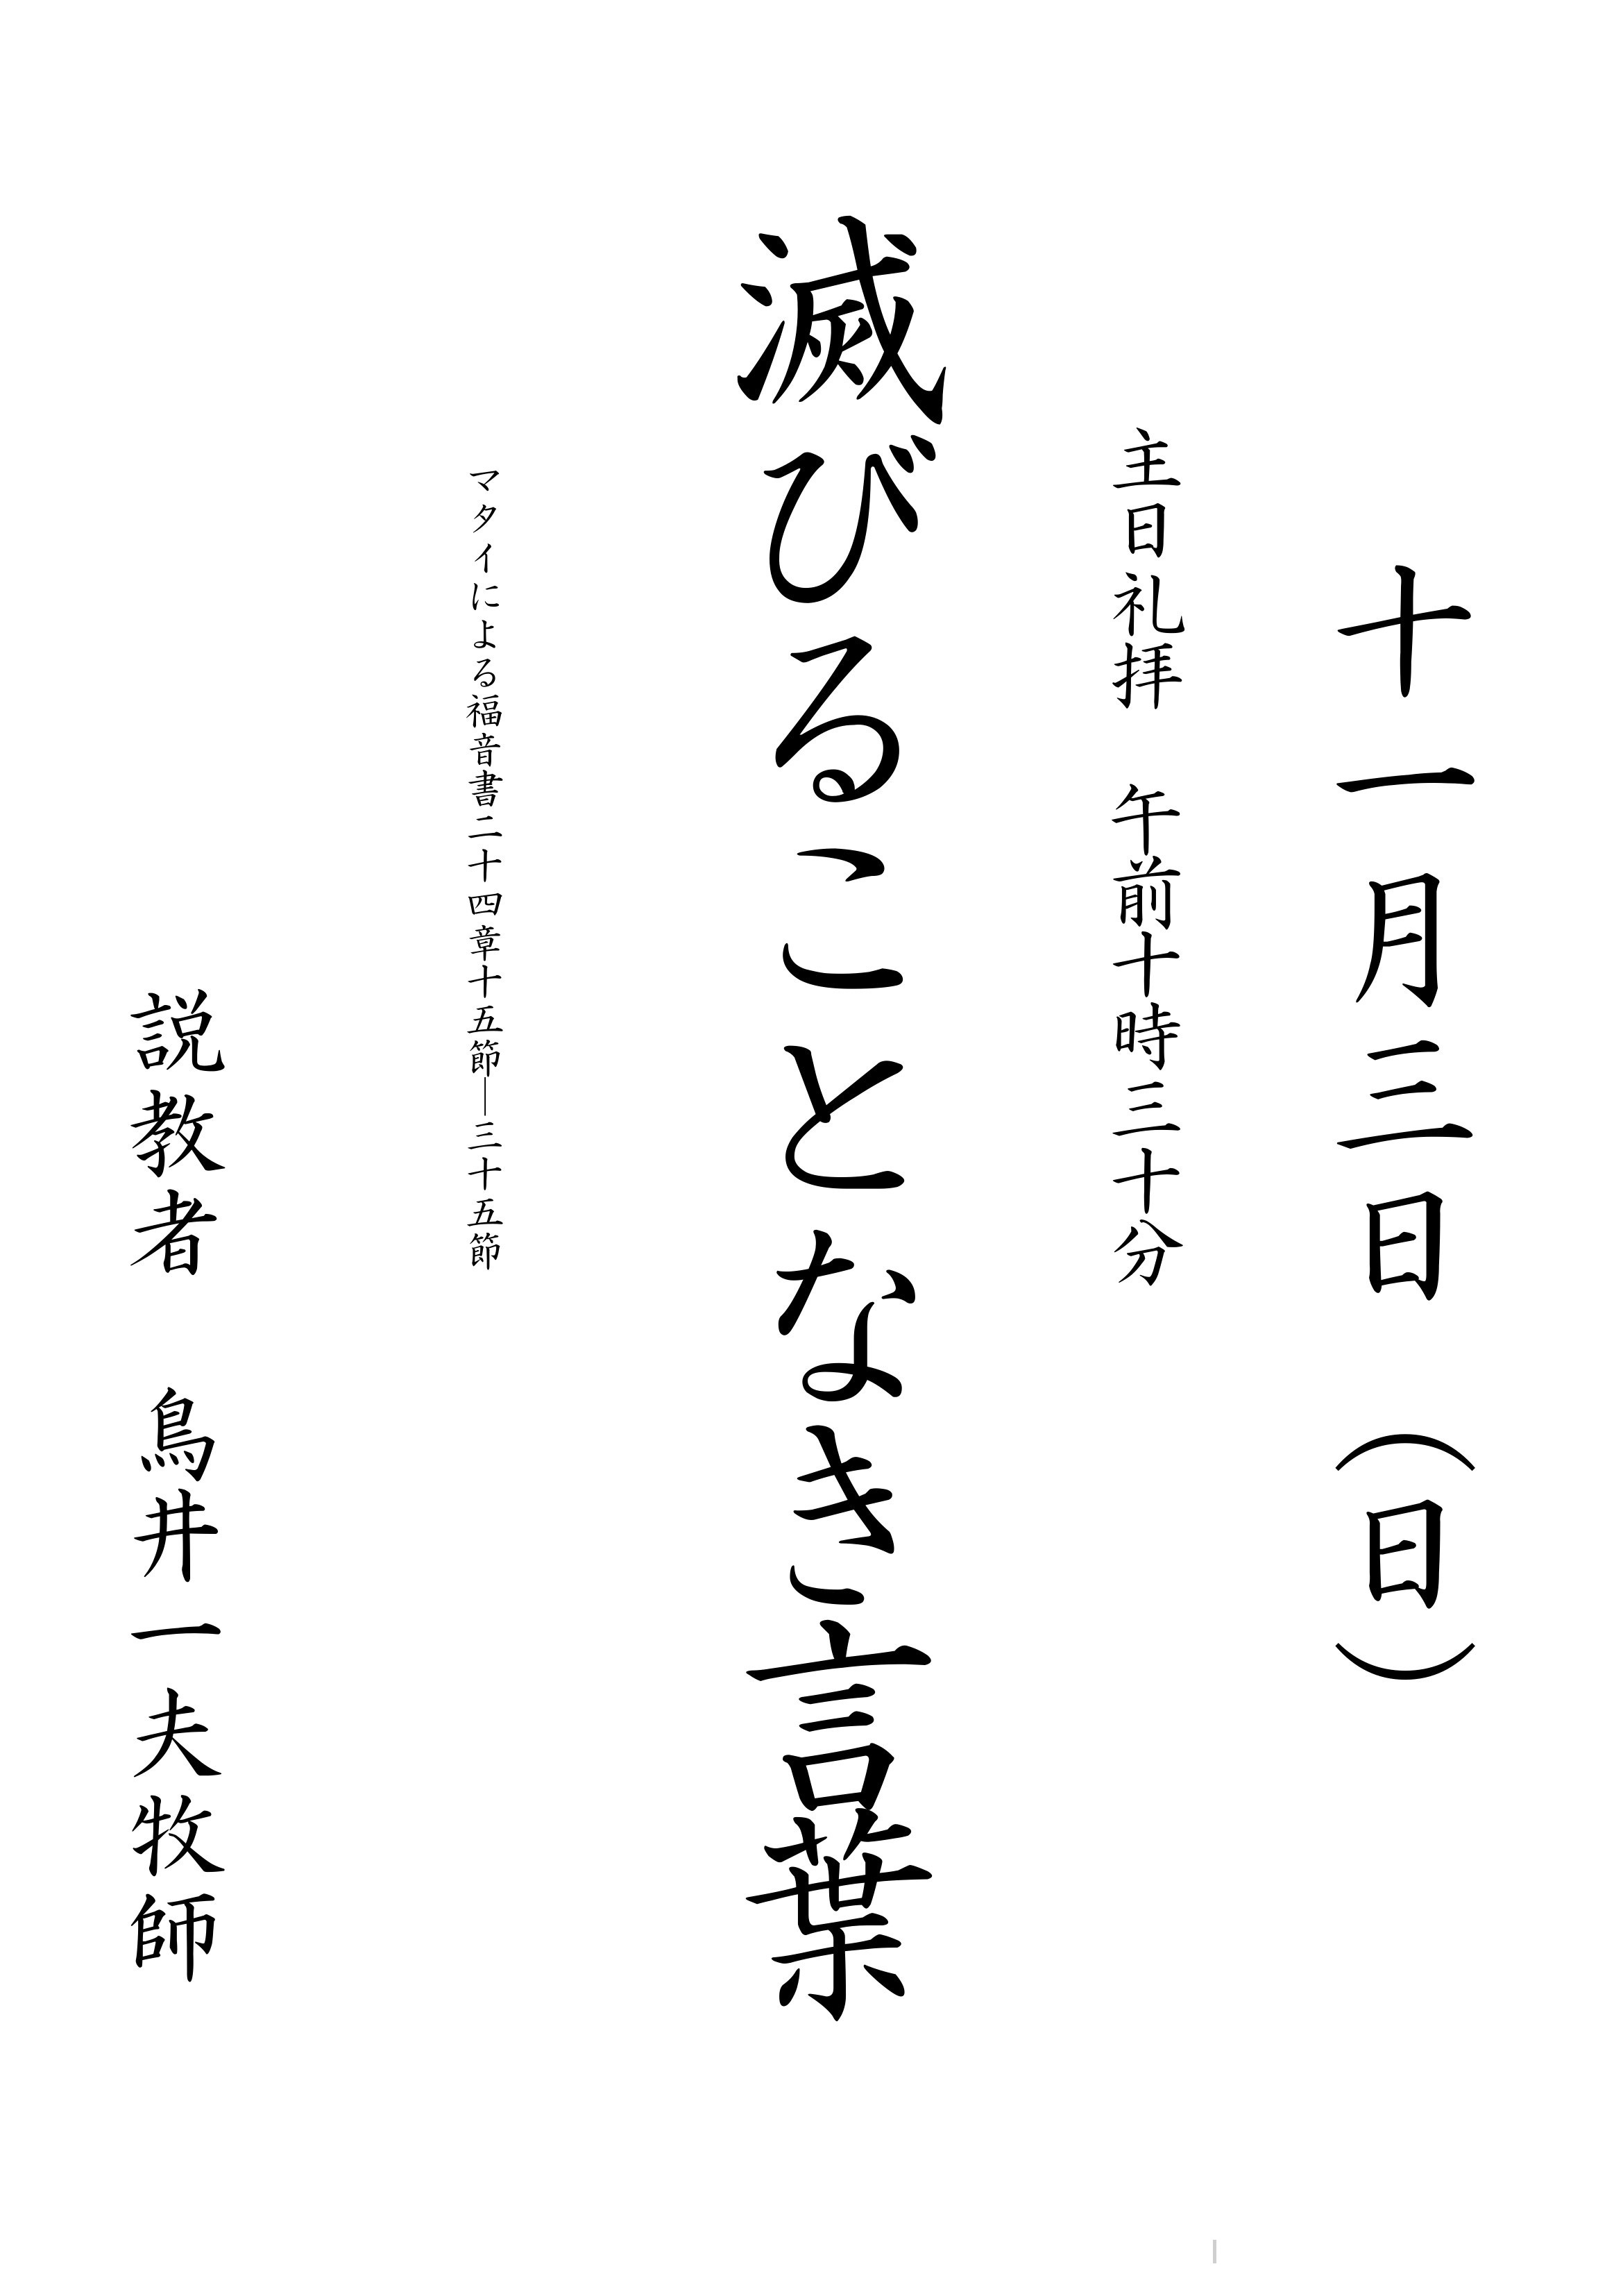 十一月三日　（日）
主日礼拝　午前十時三十分
滅びることなき言葉
マタイによる福音書二十四章十五節―三十五節
説教者　鳥井一夫牧師